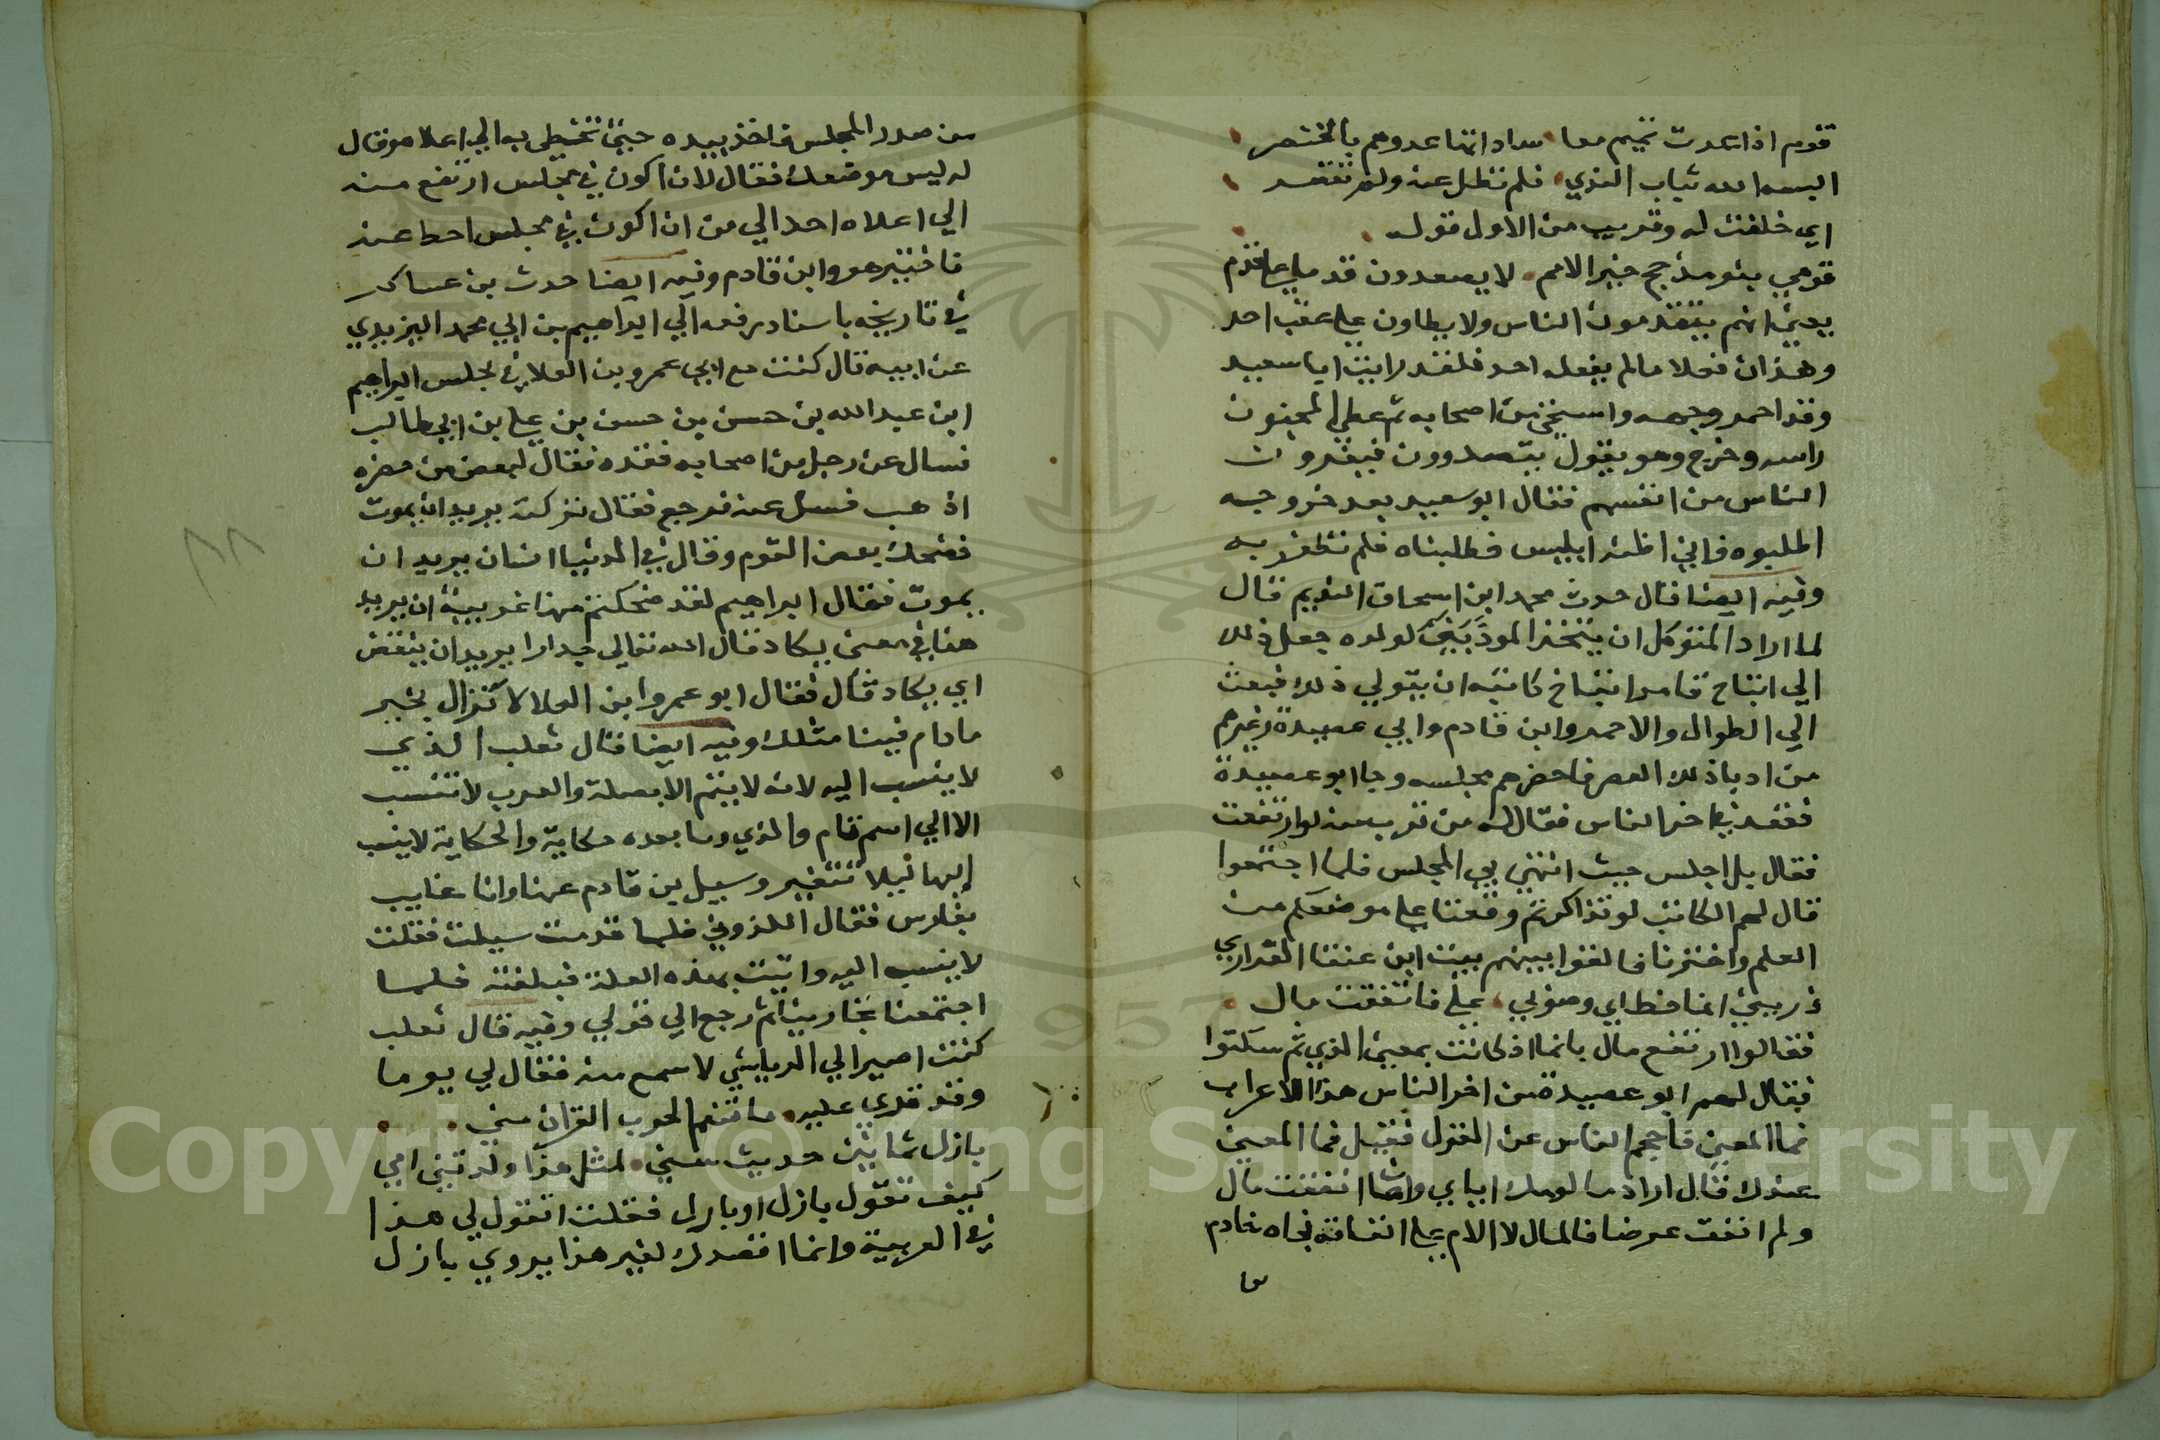 قوم اذا عدت تميم معا ساداتها عدوهم بالخنصر
البسه الله ثياب الندي فلم تطل عنه ولم تقصر
اي خلقت له وقريب من الاول قوله
قومي بنو مذحج خير الامم لا يصعدون قدما علي قدم
يعني انهم يتقدمون الناس ولا يطاون علي عقب احد
وهذان فعلا ما لم يفعله احد فلقد رايت ابا سعيد
وقد احمر وجهه واستحي من اصحابه ثم غطي المجنون
راسه وخرج وهو يقول يتصدرون فيغرون
الناس من انفسهم فقال ابو سعيد بعد خروجه
اطلبوه فاني اظنه ابليس فطلبناه فلم نظفر به
وفيه ايضا قال حدث محمد ابن اسحاق النديم قال
لما اراد المتوكل ان يتخذ المودبين لولده جعل ذلك
الي ايتاخ فامر ايتاخ كاتبه ان يتولي ذلك فبعث
الي الطوال والاحمر وابن قادم وابي عصيدة وغيرهم
من ادبا ذلك العصر فاحضرهم مجلسه وجا ابو عصيدة
فقعد في اخر الناس فقال له من قرب منه لو ارتفعت
فقال بل اجلس حيث انتهي بي المجلس فلما اجتمعوا
قال لهم الكاتب لو تذاكرتم وقفنا علي موضعكم من
العلم واخترنا فالقوا بينهم بيت ابن عنقا الفزاري
ذريني انما خطاي وصوبي علي فانفقت مال
فقالوا ارتفع مال بانما اذ كانت بمعني الذي ثم سكتوا
فقال لهم ابو عصيدة من اخر الناس هذا الاعراب
فما المعني فاحجم الناس عن القول فقيل فما المعني
عندك قال اراد ما لومك اياي وانما انفقت مال
ولم انفق عرضا فالمال لا الام علي انفاقه فجاه خادم
من صدر المجلس فاخذ بيده حتي تخطي به الي اعلاه وقال
له ليس موضعك فقال لان اكون في مجلس ارتفع منه
الي اعلاه احب الي من ان اكون في مجلس احط عنه
فاختير هو وابن قادم وفيه ايضا حدث بن عساكر
في تاريخه باسناد رفعه الي ابراهيم بن ابي محمد اليزيدي
عن ابيه قال كنت مع ابي عمرو بن العلا في مجلس ابراهيم
ابن عبد الله بن حسن بن حسن بن علي بن ابي طالب
فسال عن رجل من اصحابه فقده فقال لبعض من حضره
اذهب فسل عنه فرجع فقال تركته يريد ان يموت
فضحك بعض القوم وقال في الدنيا انسان يريد ان
يموت فقال ابراهيم لقد ضحكتم منها غريبة ان يريد
هنا في معني يكاد قال الله تعالي جدارا يريد ان ينقض
اي يكاد قال فقال ابو عمرو ابن العلا لا نزال بخير
مادام فينا مثلك وفيه ايضا قال ثعلب الذي
لا ينسب اليه لانه لا يتم الا بصلة والعرب لا تنسب
الا الي اسم تام والذي وما بعده حكاية والحكاية لا ينسب
اليها ليلا تتغير وسيل بن قادم عنها وانا غايب
بفارس فقال اللذوي فلما قدمت سيلت فقلت
لا ينسب اليه واتيت بهذه العلة فبلغته فلما
اجتمعنا تجارينا ثم رجع الي قولي وفيه قال ثعلب
كنت اصير الي الرياشي لاسمع منه فقال لي يوما
وقد قري عليه ما تنقم الحرب العوان مني
بازل عامين حديث سني لمثل هذا ولدتني امي
كيف تقول بازل او بازل فقلت اتقول لي هذا
في العربية وانما اقصدك لغير هذا يروي بازل
Copyright © King Saud University
1957